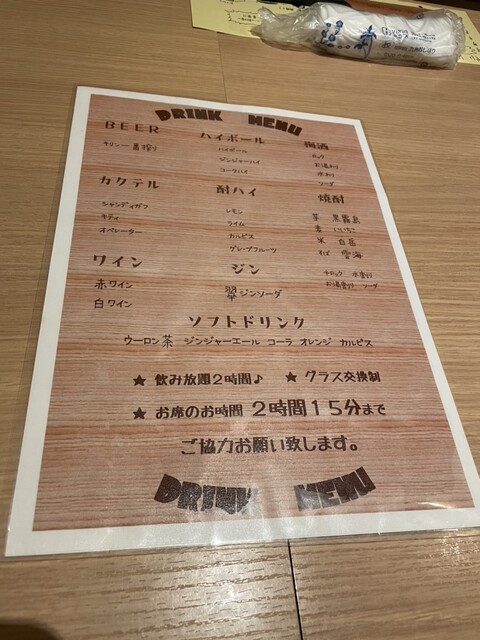 DRINK MENU
BEER
キリン一番搾り
ハイボール
ハイボール
ジンジャーハイ
コークハイ
梅酒
ロック
お湯わり
水わり
ソーダ
カクテル
シャンディガフ
キティ
オペレーター
酎ハイ
レモン
ライム
カルピス
グレープフルーツ
焼酎
芋 黒霧島
麦 いいちこ
米 白岳
そば 雲海
ワイン
赤ワイン
白ワイン
ジン
翠ジンソーダ
ロック 水割り
お湯割り ソーダ
ソフトドリンク
ウーロン茶 ジンジャーエール コーラ オレンジ カルピス
★ 飲み放題2時間♪ ★ グラス交換制
★ お席のお時間 2時間15分まで
ご協力お願い致します。
DRINK MENU